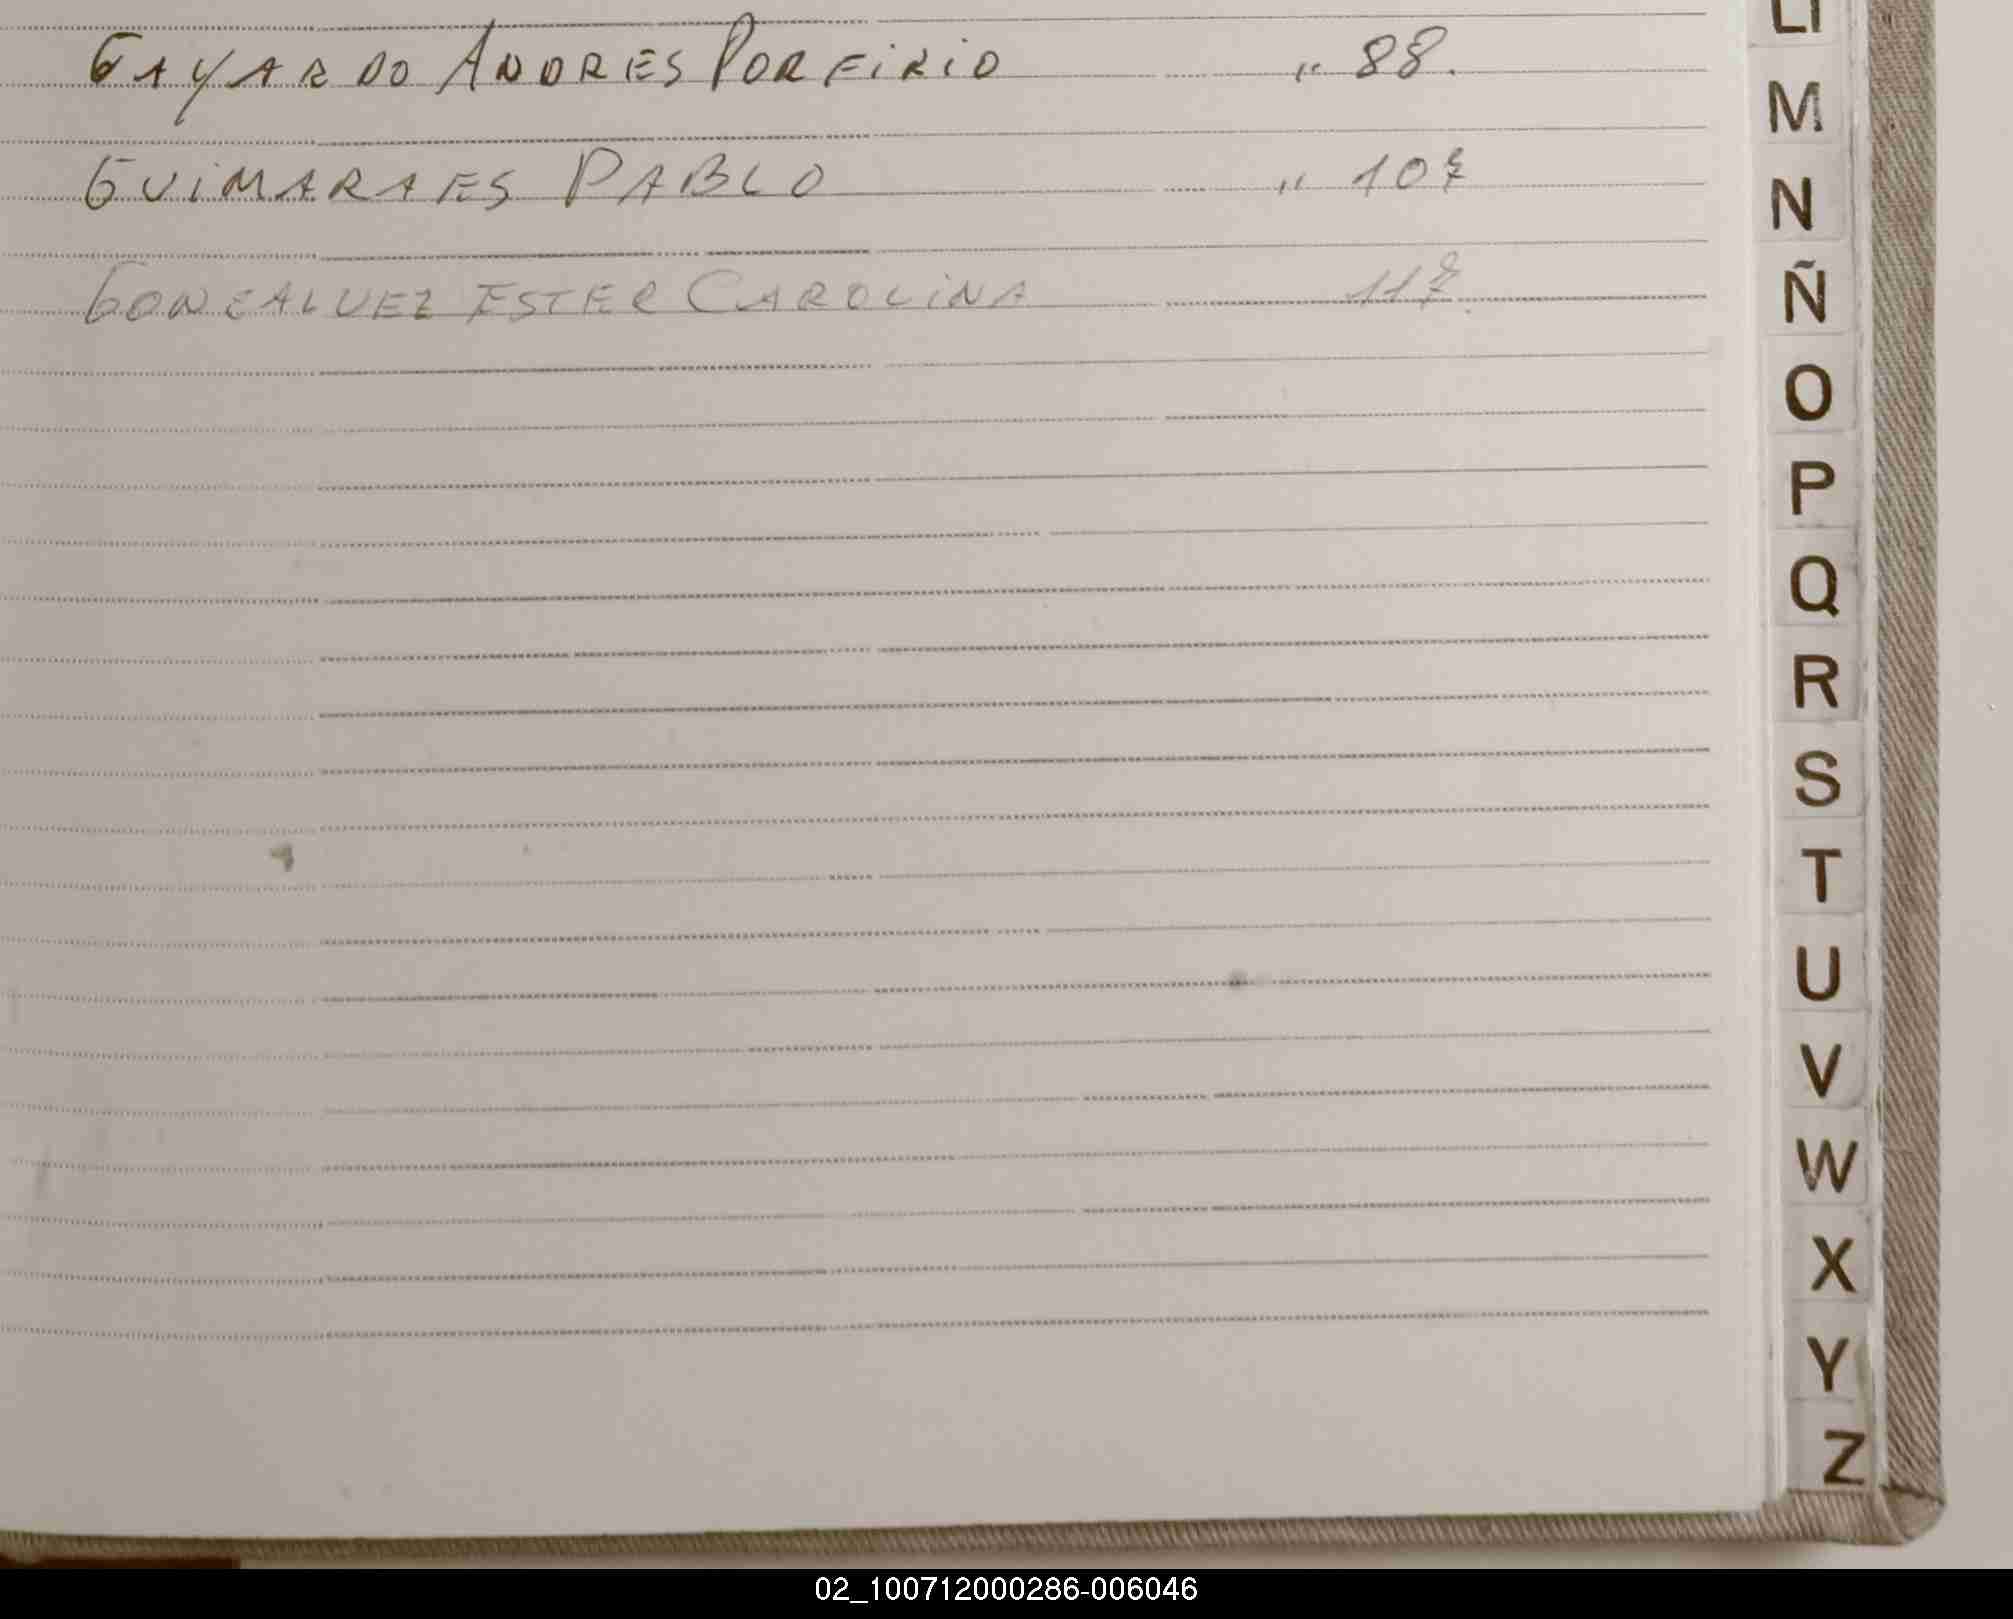 GAYARDO ANDRES PORFIRIO " 88.
GUIMARAES PABLO " 107
GONZALVEZ ESTER CAROLINA 117.
LI
M
N
Ñ
O
P
Q
R
S
T
U
V
W
X
Y
Z
02_100712000286-006046